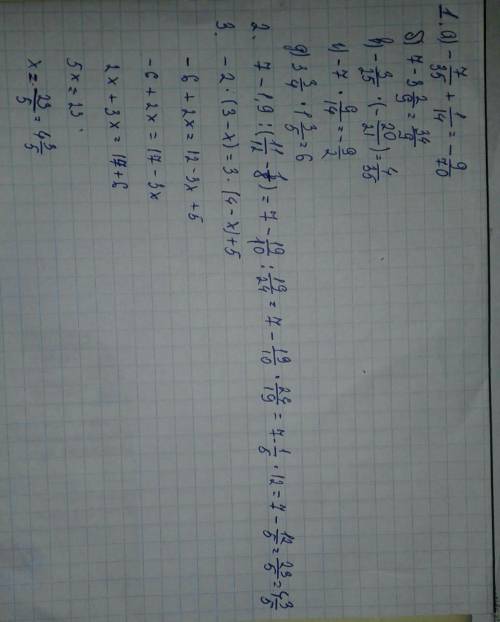 1. а) -7/35 + 1/14 = -9/70
б) 7 - 3 2/9 = 34/9
в) -3/25 · (-20/21) = 4/35
г) -7 · 9/14 = -9/2
д) 3 3/4 · 1 3/5 = 6
2. 7 - 1,9 : (11/12 - 1/8) = 7 - 19/10 : 19/24 = 7 - 19/10 · 24/19 = 7 - 1/5 · 12 = 7 - 12/5 = 23/5 = 4 3/5
3. -2 · (3 - x) = 3 · (4 - x) + 5
-6 + 2x = 12 - 3x + 5
-6 + 2x = 17 - 3x
2x + 3x = 17 + 6
5x = 23.
x = 23/5 = 4 3/5